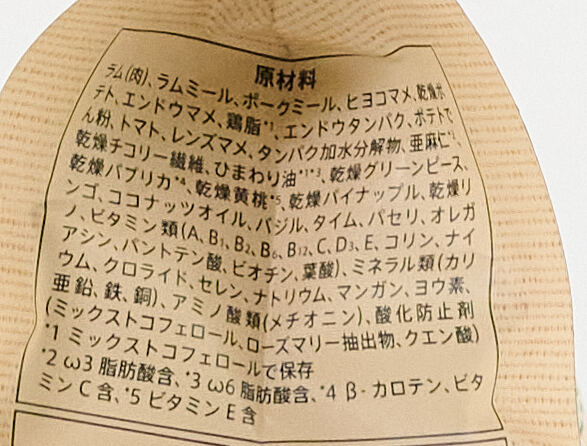 原材料
ラム(肉)、ラムミール、ポークミール、ヒヨコマメ、乾燥ポ
テト、エンドウマメ、鶏脂*1、エンドウタンパク、ポテトで
ん粉、トマト、レンズマメ、タンパク加水分解物、亜麻仁*2、
乾燥チコリー繊維、ひまわり油*1*3、乾燥グリーンピース、
乾燥パプリカ*4、乾燥黄桃*5、乾燥パイナップル、乾燥リ
ンゴ、ココナッツオイル、バジル、タイム、パセリ、オレガ
ノ、ビタミン類(A、B1、B2、B6、B12、C、D3、E、コリン、ナイ
アシン、パントテン酸、ビオチン、葉酸)、ミネラル類(カリ
ウム、クロライド、セレン、ナトリウム、マンガン、ヨウ素、
亜鉛、鉄、銅)、アミノ酸類(メチオニン)、酸化防止剤
(ミックストコフェロール、ローズマリー抽出物、クエン酸)
*1 ミックストコフェロールで保存
*2 ω3 脂肪酸含、*3 ω6 脂肪酸含、*4 β-カロテン、ビタ
ミン C 含、*5 ビタミン E 含